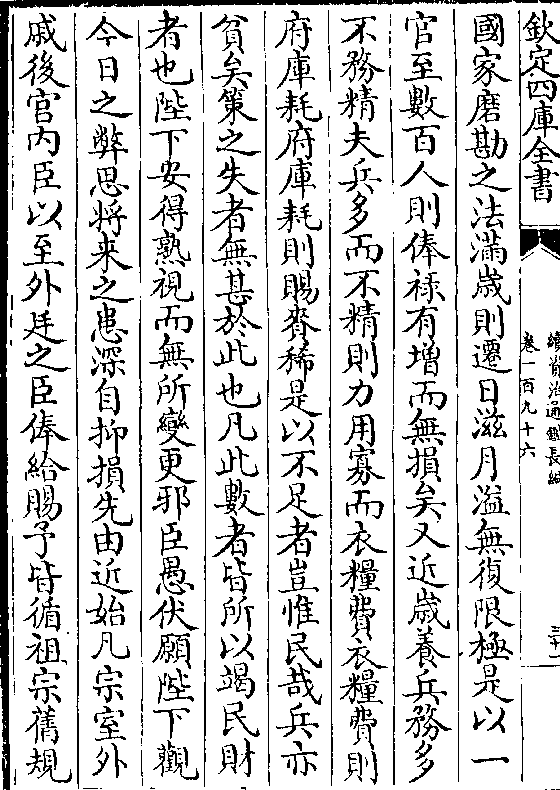 欽定四庫全書
續資治通鑑長編
卷一百九十六
三十一
國家磨勘之法滿歲則遷日滋月溢無復限極是以一
官至數百人則俸祿有增而無損矣又近歲養兵務多
不務精夫兵多而不精則力用寡而衣糧費衣糧費則
府庫耗府庫耗則賜賚稀是以不足者豈惟民哉兵亦
貧矣策之失者無甚於此也凡此數者皆所以竭民財
者也陛下安得熟視而無所變更邪臣愚伏願陛下觀
今日之弊思將来之患深自抑損先由近始凡宗室外
戚後宫内臣以至外廷之臣俸給賜予皆循祖宗舊規